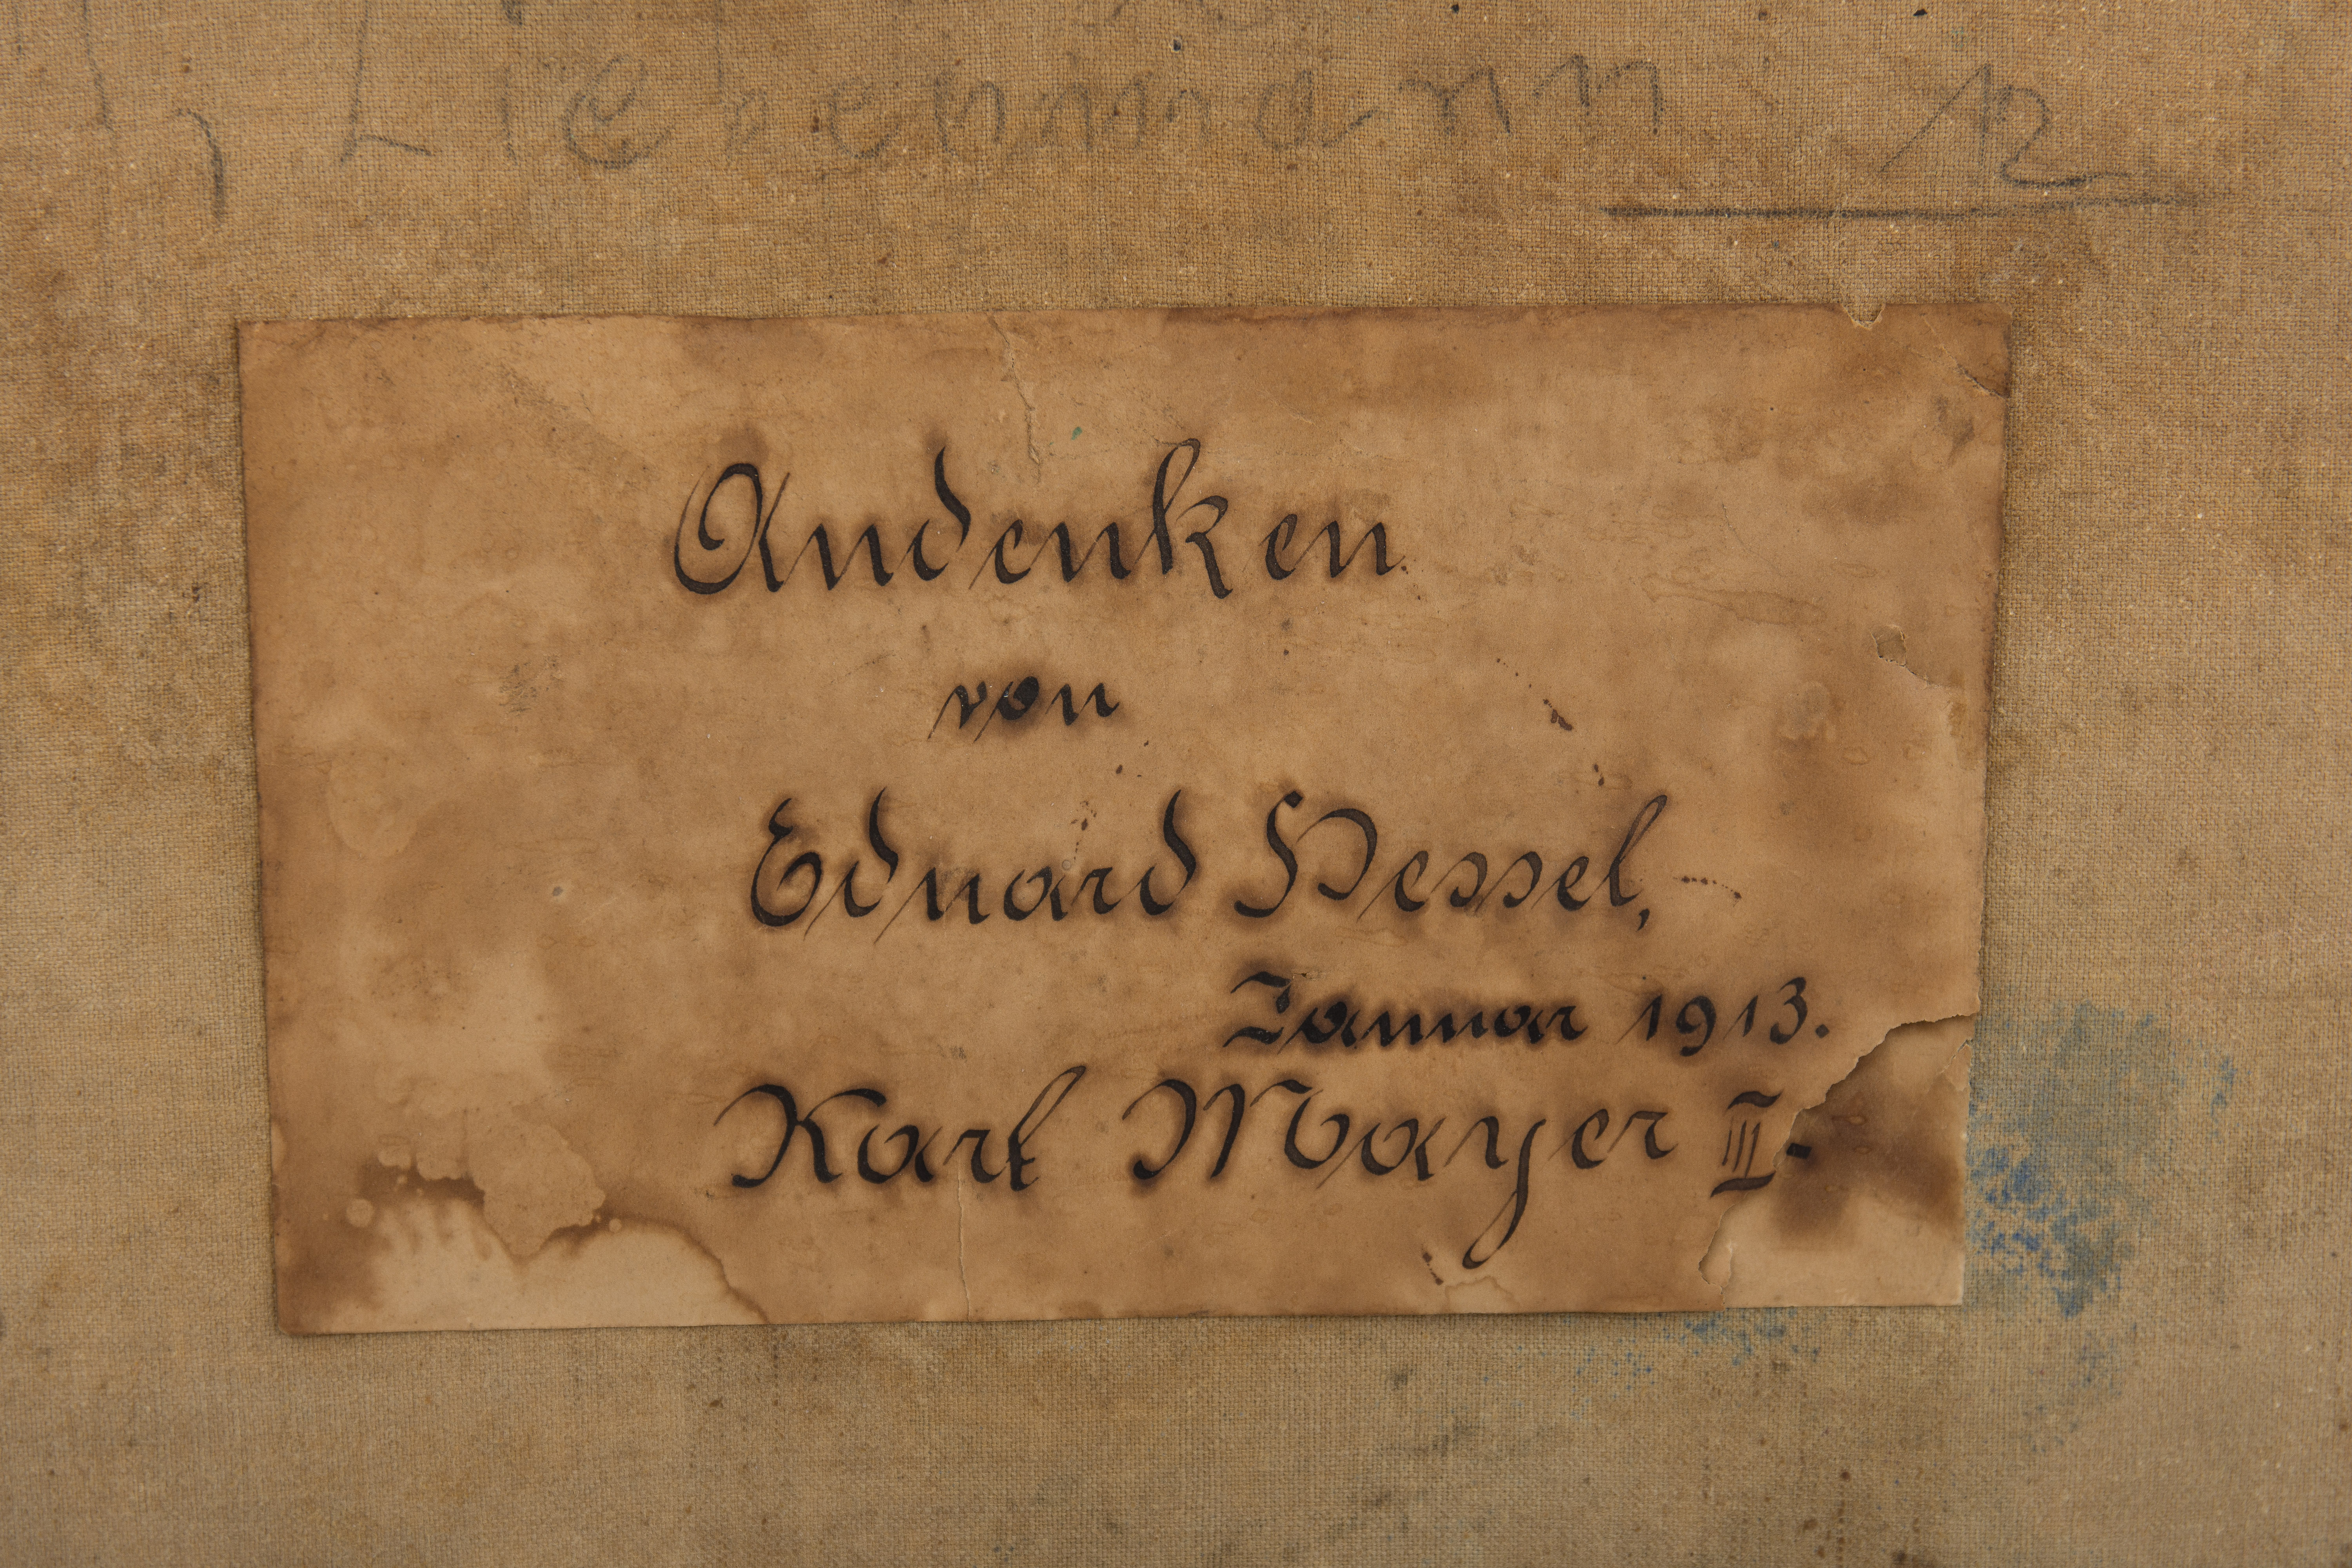 Liebenmann 12
Andenken
von
Eduard Hessel,
Januar 1913.
Karl Mayer III.